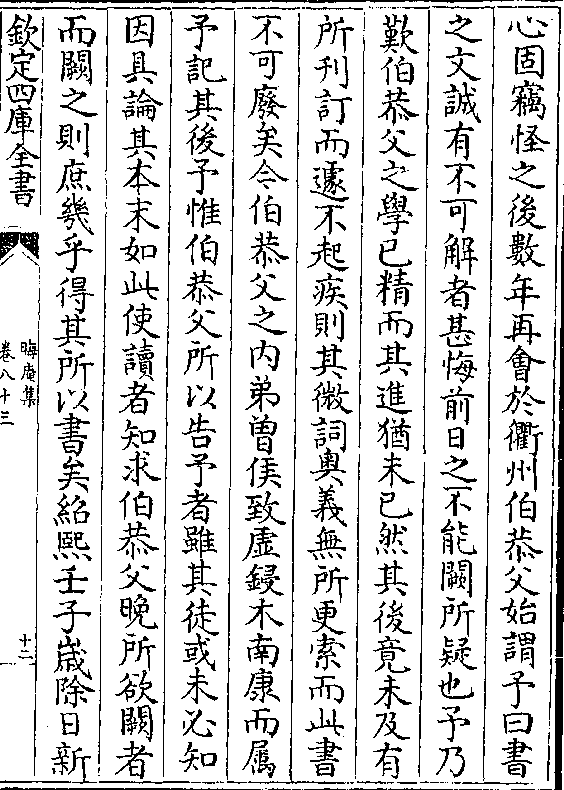 心固竊怪之後數年再會於衢州伯恭父始謂予曰書
之文誠有不可解者甚悔前日之不能闕所疑也予乃
歎伯恭父之學已精而其進猶未已然其後竟未及有
所刋訂而遽不起疾則其微詞奥義無所更索而此書
不可廢矣今伯恭父之内弟曾侯致虚鋟木南康而屬
予記其後予惟伯恭父所以告予者雖其徒或未必知
因具論其本末如此使讀者知求伯恭父晩所欲闕者
而闕之則庶幾乎得其所以書矣紹熙壬子歲除日新
欽定四庫全書
晦庵集
卷八十三
十二